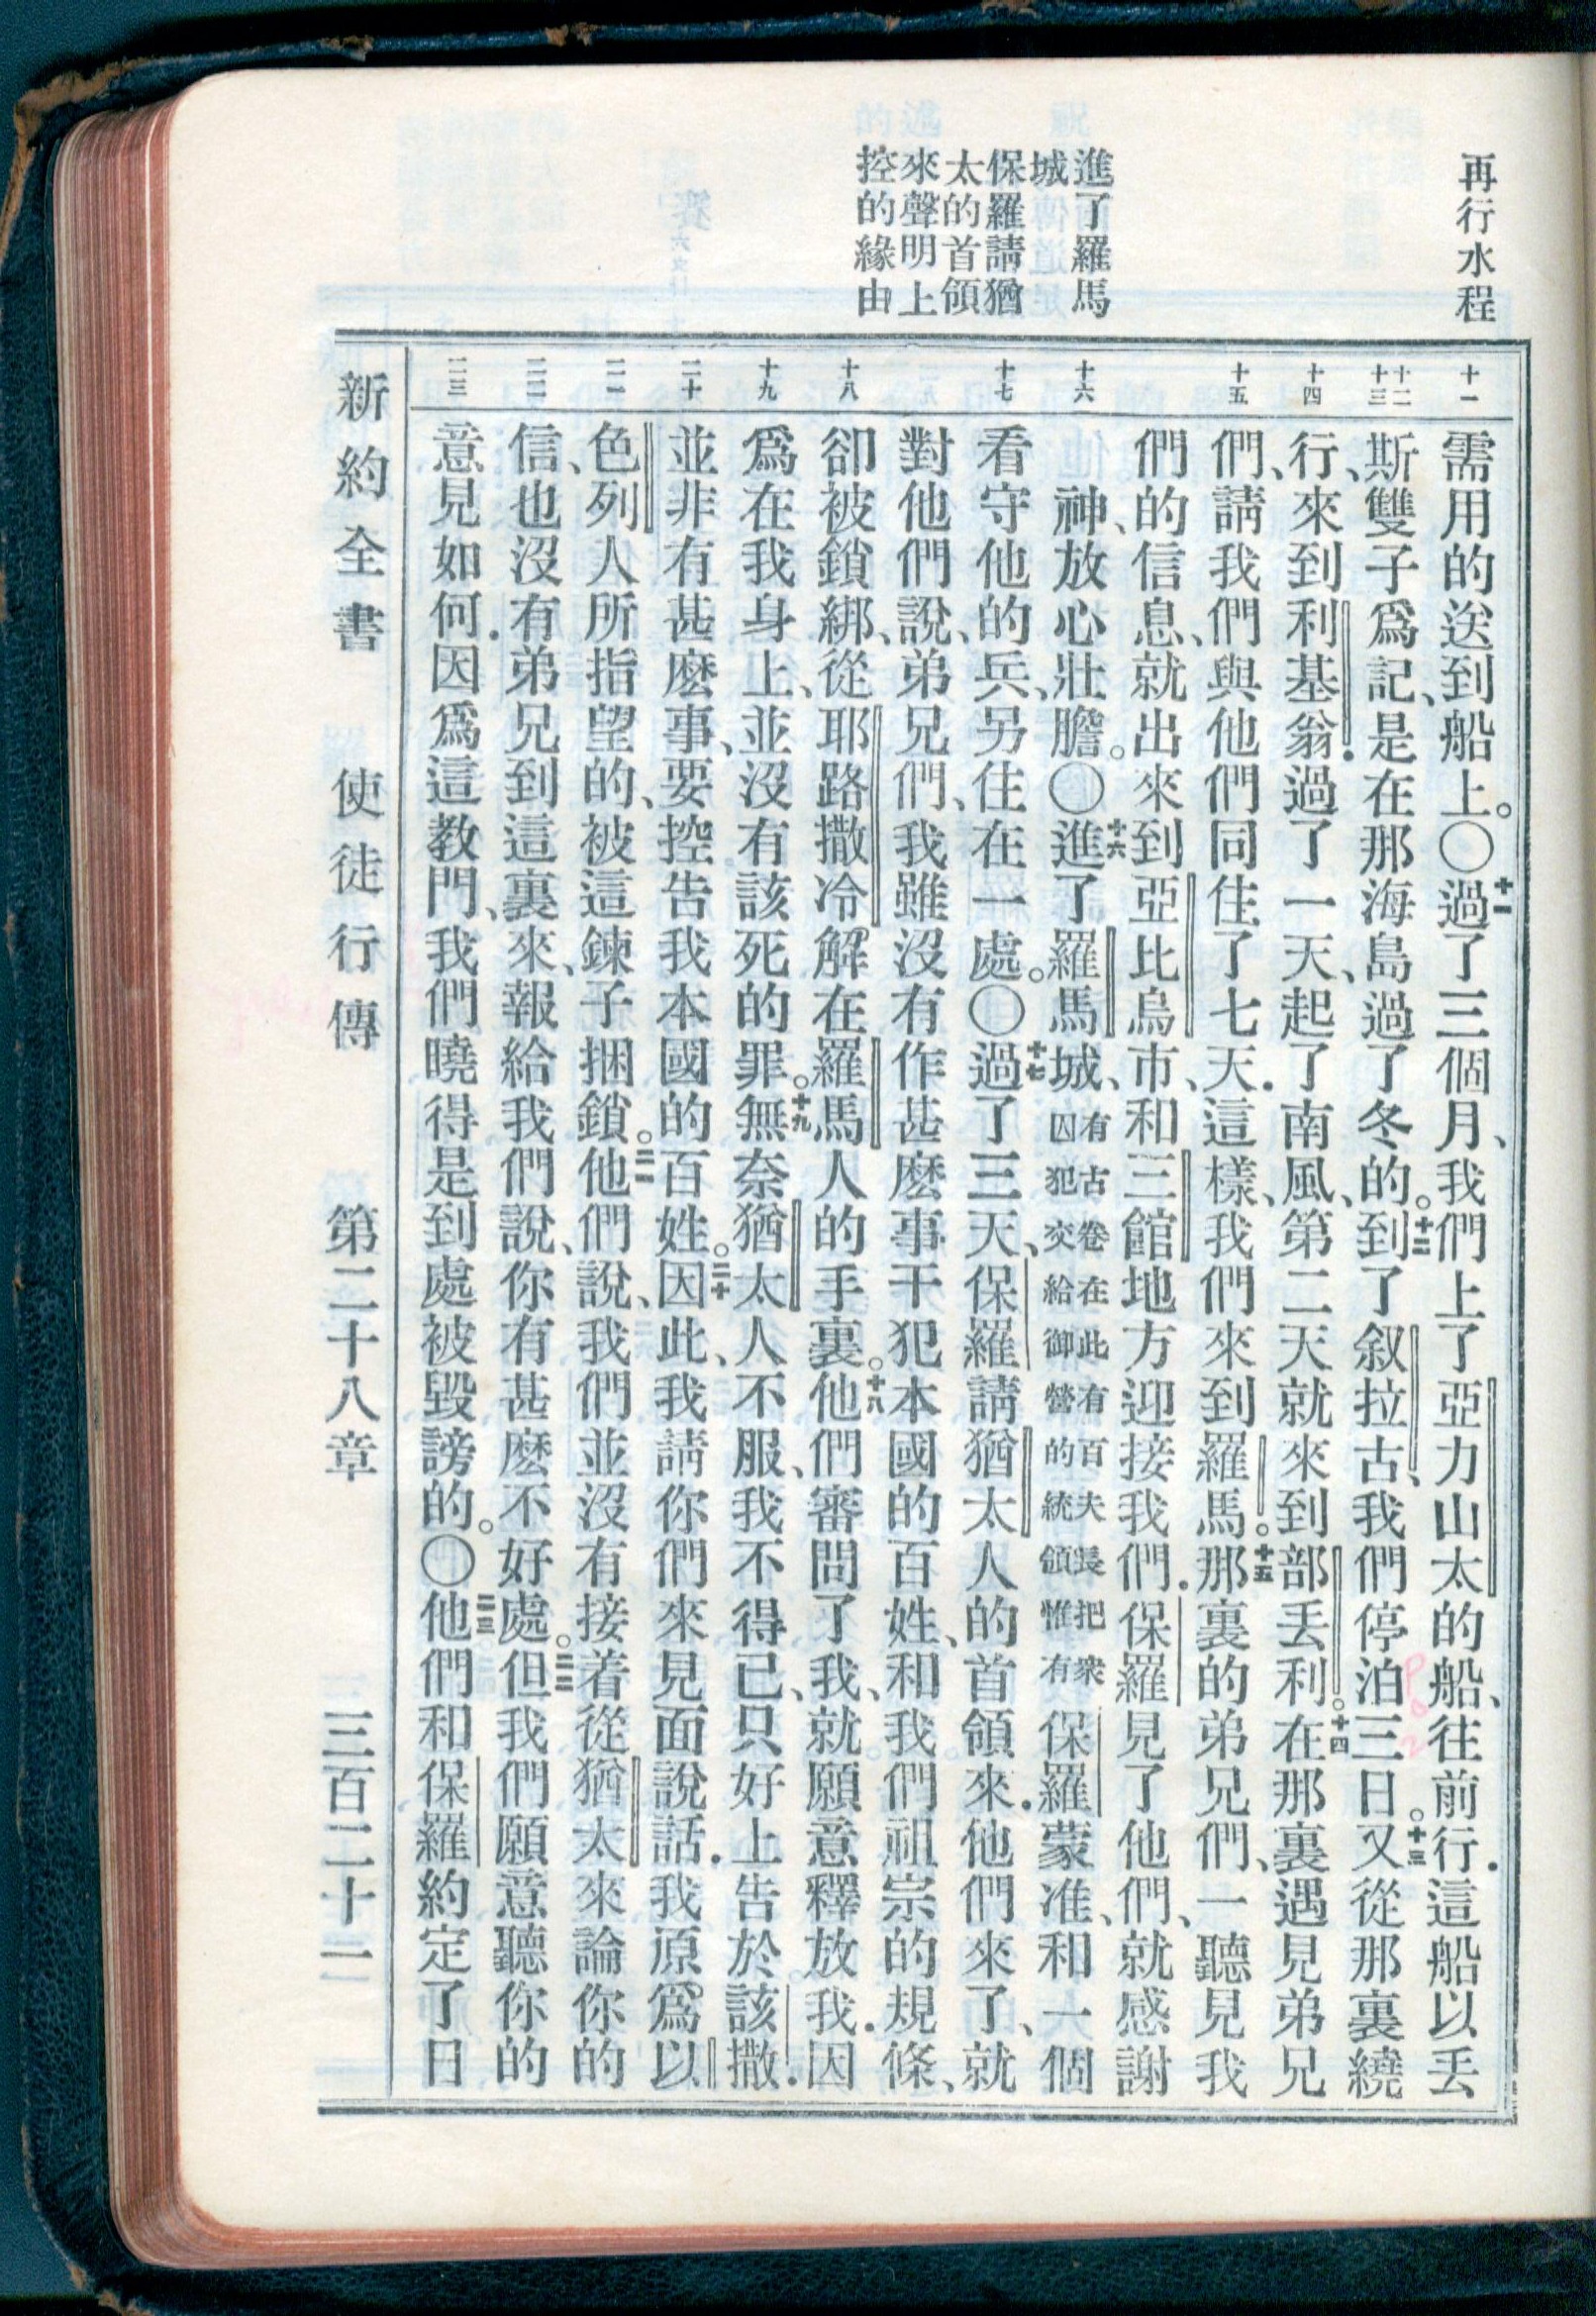 再行水程
進了羅馬
城
保羅請猶
太的首領
來聲明上
控的緣由
十一
十二
十三
十四
十五
十六
十七
十八
十九
二十
二一
二二
二三
需用的送到船上。〇十一過了三個月、我們上了亞力山太的船、往前行．這船以丟
斯雙子爲記、是在那海島過了冬的。十二到了叙拉古、我們停泊三日。十三又從那裏繞
行、來到利基翁．過了一天、起了南風、第二天就來到部丟利。十四在那裏遇見弟兄
們、請我們與他們同住了七天．這樣、我們來到羅馬。十五那裏的弟兄們、一聽見我
們的信息、就出來到亞比烏市、和三館地方迎接我們．保羅見了他們、就感謝
神、放心壯膽。〇十六進了羅馬城、有古卷在此有百夫長把衆囚犯交給御營的統領惟有保羅蒙准、和一個
看守他的兵、另住在一處。〇十七過了三天、保羅請猶太人的首領來．他們來了、就
對他們說、弟兄們、我雖沒有作甚麽事干犯本國的百姓、和我們祖宗的規條、
卻被鎖綁、從耶路撒冷解在羅馬人的手裏。十八他們審問了我、就願意釋放我．因
爲在我身上、並沒有該死的罪。十九無奈猶太人不服、我不得已、只好上告於該撒．
並非有甚麽事、要控告我本國的百姓。二十因此、我請你們來見面說話．我原爲以
色列人所指望的、被這鍊子捆鎖。二一他們說、我們並沒有接着從猶太來論你的
信、也沒有弟兄到這裏來、報給我們說、你有甚麽不好處。二二但我們願意聽你的
意見如何．因爲這教門、我們曉得是到處被毀謗的。〇二三他們和保羅約定了日
新約全書　使徒行傳　第二十八章　三百二十二